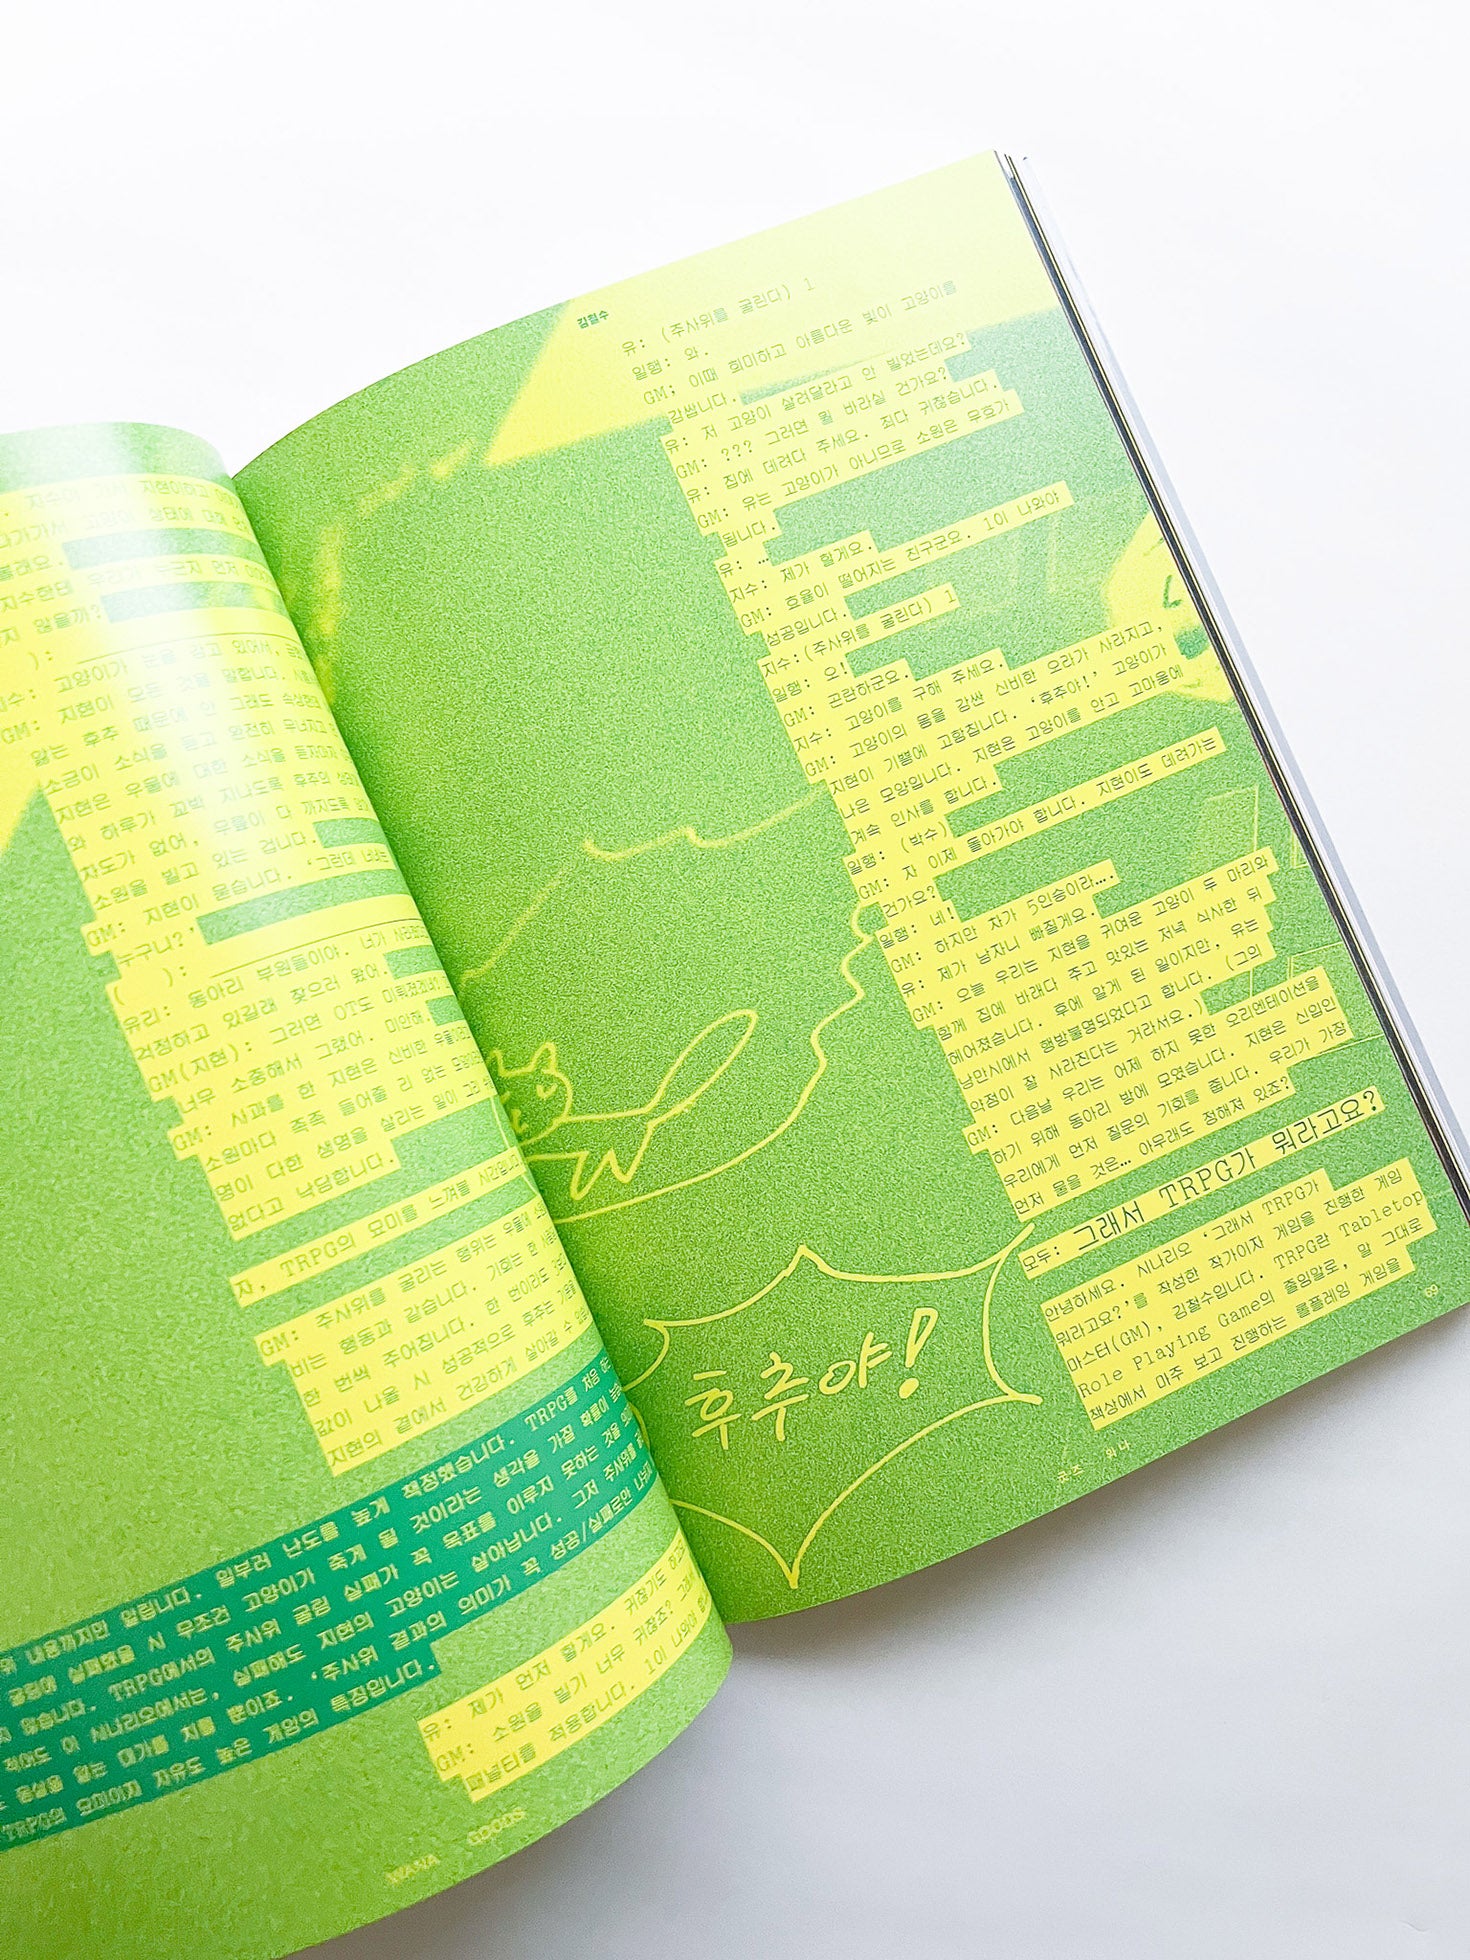 지수한텐 우리가 누군지 먼저
지 않을까?
지수: 고양이가 눈을 감고 있어서.
GM: 지현이 모든 것을 말합니다.
앓는 후추 때문에 안 그래도
소금이 소식을 듣고 완전히 무너지고
지현은 우물에 대한 소식을 듣자마자
와 하루가 꼬박 지나도록 후추의
차도가 없어, 무릎이 다 까지도록
소원을 빌고 있는 겁니다.
GM: 지현이 묻습니다. ‘그런데
누구냐?’
( ):
유리: 동아리 부원들이야. 너가
걱정하고 있길래 찾으러 왔어.
GM(지현): 그러면 OT도
너무 소중해서 그랬어. 미안해.
GM: 사과를 한 지현은 신비한
소원마다 족족 들어줄 리 없는
명이 다한 생명을 살리는 일이 그리
없다고 낙담합니다.
자, TRPG의 묘미를 느껴볼 시간입니다
GM: 주사위를 굴리는 행위는 우물에
비는 행동과 같습니다. 기회는 한
한 번씩 주어집니다. 한 번이라도
값이 나올 시 성공적으로 후추는
지현의 곁에서 건강하게 살아갈 수
알립니다. 일부러 난도를 높게 책정했습니다. TRPG를 처음
굴림에 실패했을 시 무조건 고양이가 죽게 될 것이라는 생각을 가질 확률이
지 않습니다. TRPG에서의 주사위 굴림 실패가 꼭 목표를 이루지 못하는 것을
적어도 이 시나리오에서는, 실패해도 지현의 고양이는 살아납니다. 그저 주사위를
대가를 치를 뿐이죠. ‘주사위 결과의 의미가 꼭 성공/실패로만
TRPG의 묘미이자 자유도 높은 게임의 특징입니다.
유: 제가 먼저 할게요. 귀찮기도 하고
GM: 소원을 빌기 너무 귀찮죠?
패널티를 적용합니다. 1이 나와야
WANA GOODS
김철수
유: (주사위를 굴린다) 1
일행: 와.
GM; 이때 희미하고 아름다운 빛이 고양이를
감쌉니다.
유: 저 고양이 살려달라고 안 빌었는데요?
GM: ??? 그러면 뭘 바라실 건가요?
유: 집에 데려다 주세요. 죄다 귀찮습니다.
GM: 유는 고양이가 아니므로 소원은 무효가
됩니다.
유: …
지수: 제가 할게요.
GM: 효율이 떨어지는 친구군요. 1이 나와야
성공입니다.
지수:(주사위를 굴린다) 1
일행: 오!
GM: 곤란하군요.
지수: 고양이를 구해 주세요.
GM: 고양이의 몸을 감싼 신비한 오라가 사라지고,
지현이 기쁨에 고함칩니다. ‘후추야!’ 고양이가
나은 모양입니다. 지현은 고양이를 안고 고마움에
계속 인사를 합니다.
일행: (박수)
GM: 자 이제 돌아가야 합니다. 지현이도 데려가는
건가요?
일행: 네!
GM: 하지만 차가 5인승이라….
유: 제가 남자니 빠질게요.
GM: 오늘 우리는 지현을 귀여운 고양이 두 마리와
함께 집에 바래다 주고 맛있는 저녁 식사한 뒤
헤어졌습니다. 후에 알게 된 일이지만, 유는
남만시에서 행방불명되었다고 합니다. (그의
약점이 잘 사라진다는 거라서요.)
GM: 다음날 우리는 어제 하지 못한 오리엔테이션을
하기 위해 동아리 방에 모였습니다. 지현은 신입인
우리에게 먼저 질문의 기회를 줍니다. 우리가 가장
먼저 물을 것은… 아무래도 정해져 있죠?
모두: 그래서 TRPG가 뭐라고요?
안녕하세요. 시나리오 ‘그래서 TRPG가
뭐라고요?’를 작성한 작가이자 게임을 진행한 게임
마스터(GM), 김철수입니다. TRPG란 Tabletop
Role Playing Game의 줄임말로, 말 그대로
책상에서 마주 보고 진행하는 롤플레잉 게임을
후추야!
굿즈 와나
69